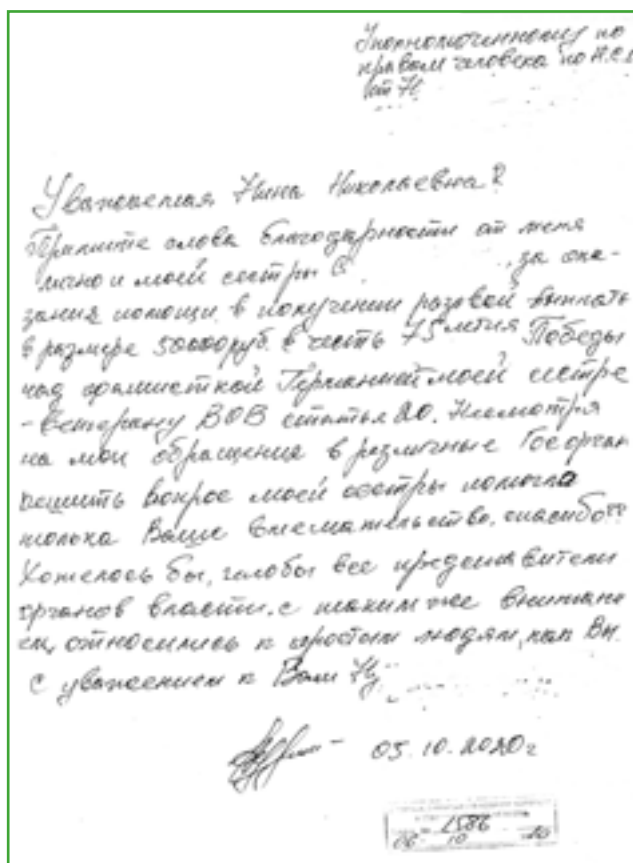 Уполномоченному по
правам человека по Н.С.
от Н
Уважаемая Нина Николаевна!
Примите слова благодарности от меня
лично и моей сестры С за ока-
зание помощи в получении разовой выплаты
в размере 50000 руб. в честь 75 летия Победы
над фашисткой Германией моей сестре
- Ветерану ВОВ статья 20. Несмотря
на мои обращения в различные Госорган
решить вопрос моей сестры помогло
только Ваше вмешательство, спасибо!!
Хотелось бы, чтобы все представители
органов власти, с таким же внимани
ем, относились к простым людям, как Вы.
С уважением к Вам Н
05.10.2020г
1586
06 10 20